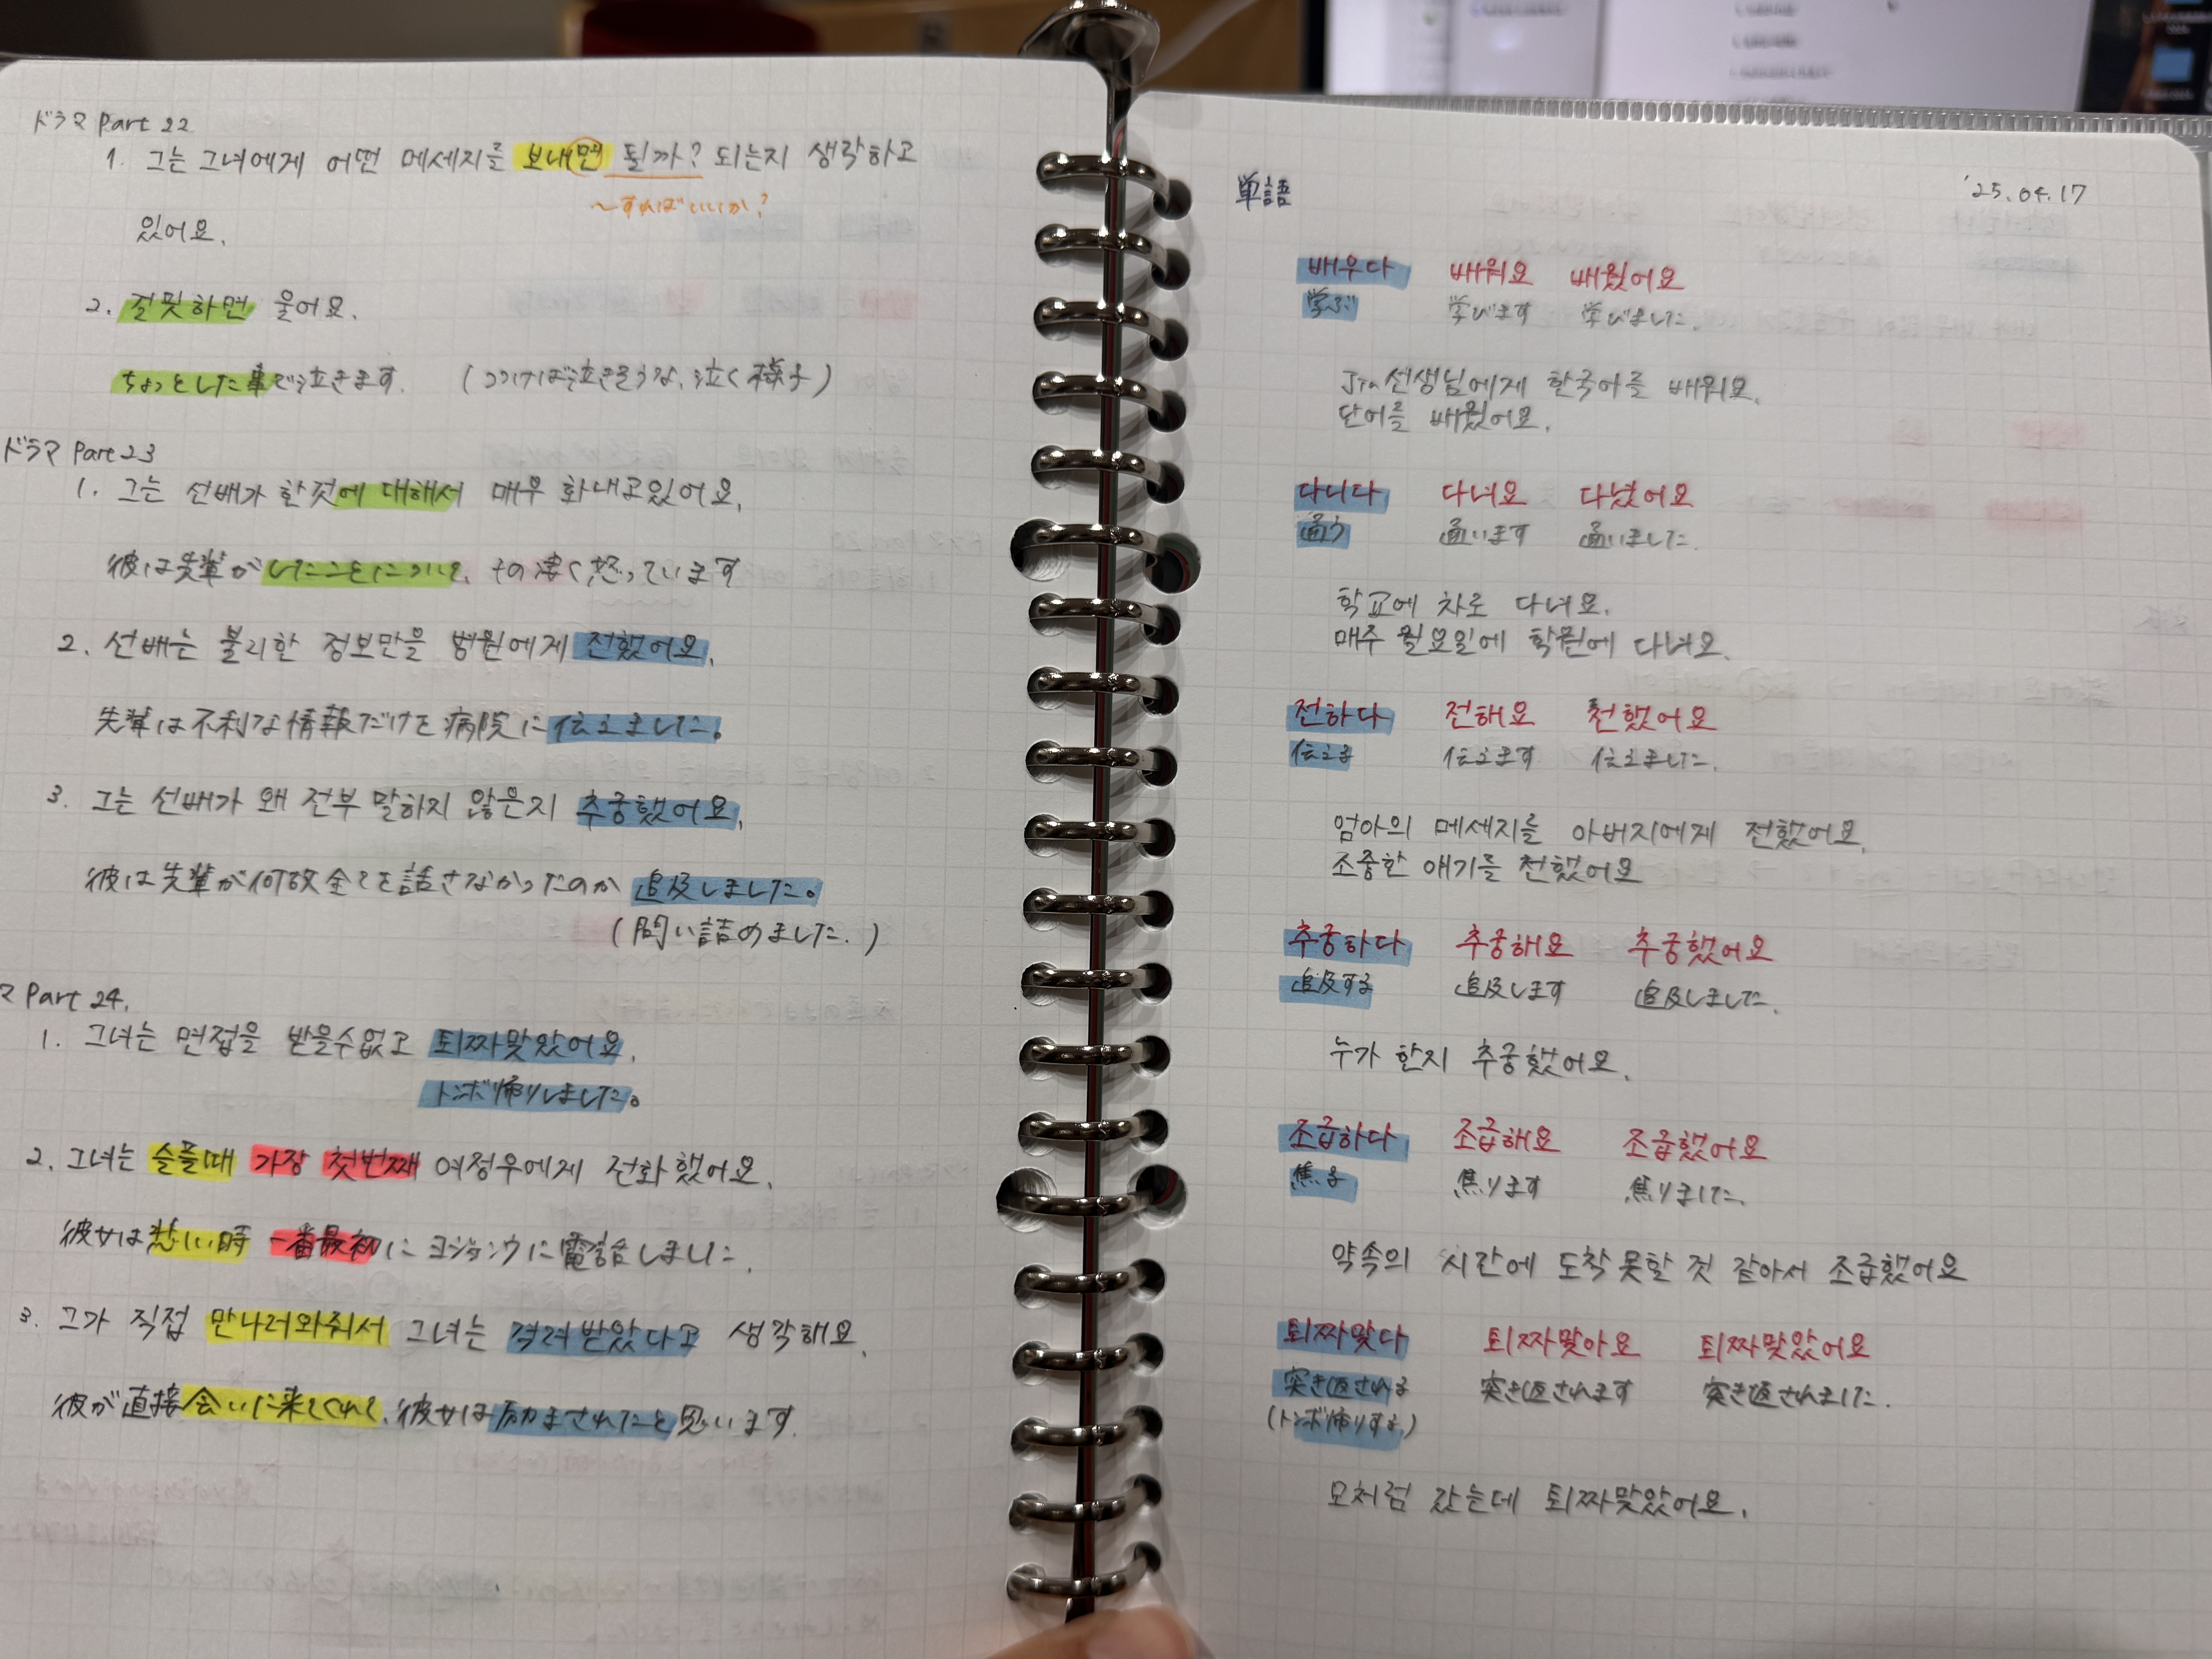 ドラマ Part 22
1. 그는 그녀에게 어떤 메세지를 보내면 될까? 되는지 생각하고
〜すればいいか?
있어요.
2. 잘못하면 울어요.
ちょっとした事で泣きます. (つつけば泣きそうな、泣く様子)
ドラマ Part 23
1. 그는 선배가 한것에 대해서 매우 화내고있어요.
彼は先輩がしたことについて、もの凄く怒っています
2. 선배는 불리한 정보만을 병원에게 전했어요.
先輩は不利な情報だけを病院に伝えました。
3. 그는 선배가 왜 전부 말하지 않은지 추궁했어요.
彼は先輩が何故全てを話さなかったのか 追及しました。
(問い詰めました.)
マ Part 24.
1. 그녀는 면접을 받을수없고 퇴짜맞았어요.
トンボ帰りしました。
2. 그녀는 슬플때 가장 첫번째 여정우에게 전화했어요.
彼女は悲しい時 一番最初にヨジョンウに電話しました.
3. 그가 직접 만나러와줘서 그녀는 격려받았다고 생각해요.
彼が直接会いに来てくれて、彼女は励まされたと思います.
単語
'25.04.17
배우다 배워요 배웠어요
学ぶ 学びます 学びました.
Jin선생님에게 한국어를 배워요.
단어를 배웠어요.
다니다 다녀요 다녔어요
通う 通います 通いました.
학교에 차로 다녀요.
매주 월요일에 학원에 다녀요.
전하다 전해요 전했어요
伝える 伝えます 伝えました.
엄마의 메세지를 아버지에게 전했어요.
소중한 얘기를 전했어요
추궁하다 추궁해요 추궁했어요
追及する 追及します 追及しました.
누가 한지 추궁했어요.
조급하다 조급해요 조급했어요
焦る 焦ります 焦りました.
약속의 시간에 도착못할 것 같아서 조급했어요
퇴짜맞다 퇴짜맞아요 퇴짜맞았어요
突き返される 突き返されます 突き返されました.
(トンボ帰りする)
모처럼 갔는데 퇴짜맞았어요.